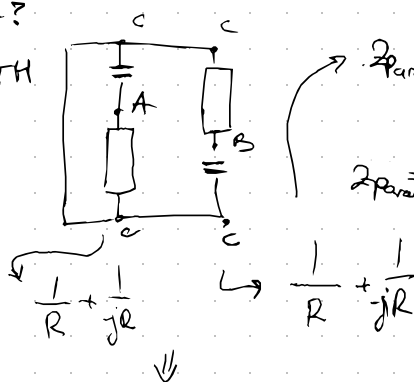 ?
TH
C C
A
B
C C
Zpar
Zpara=
1/R + 1/jR
1/R + 1/-jR
⇓